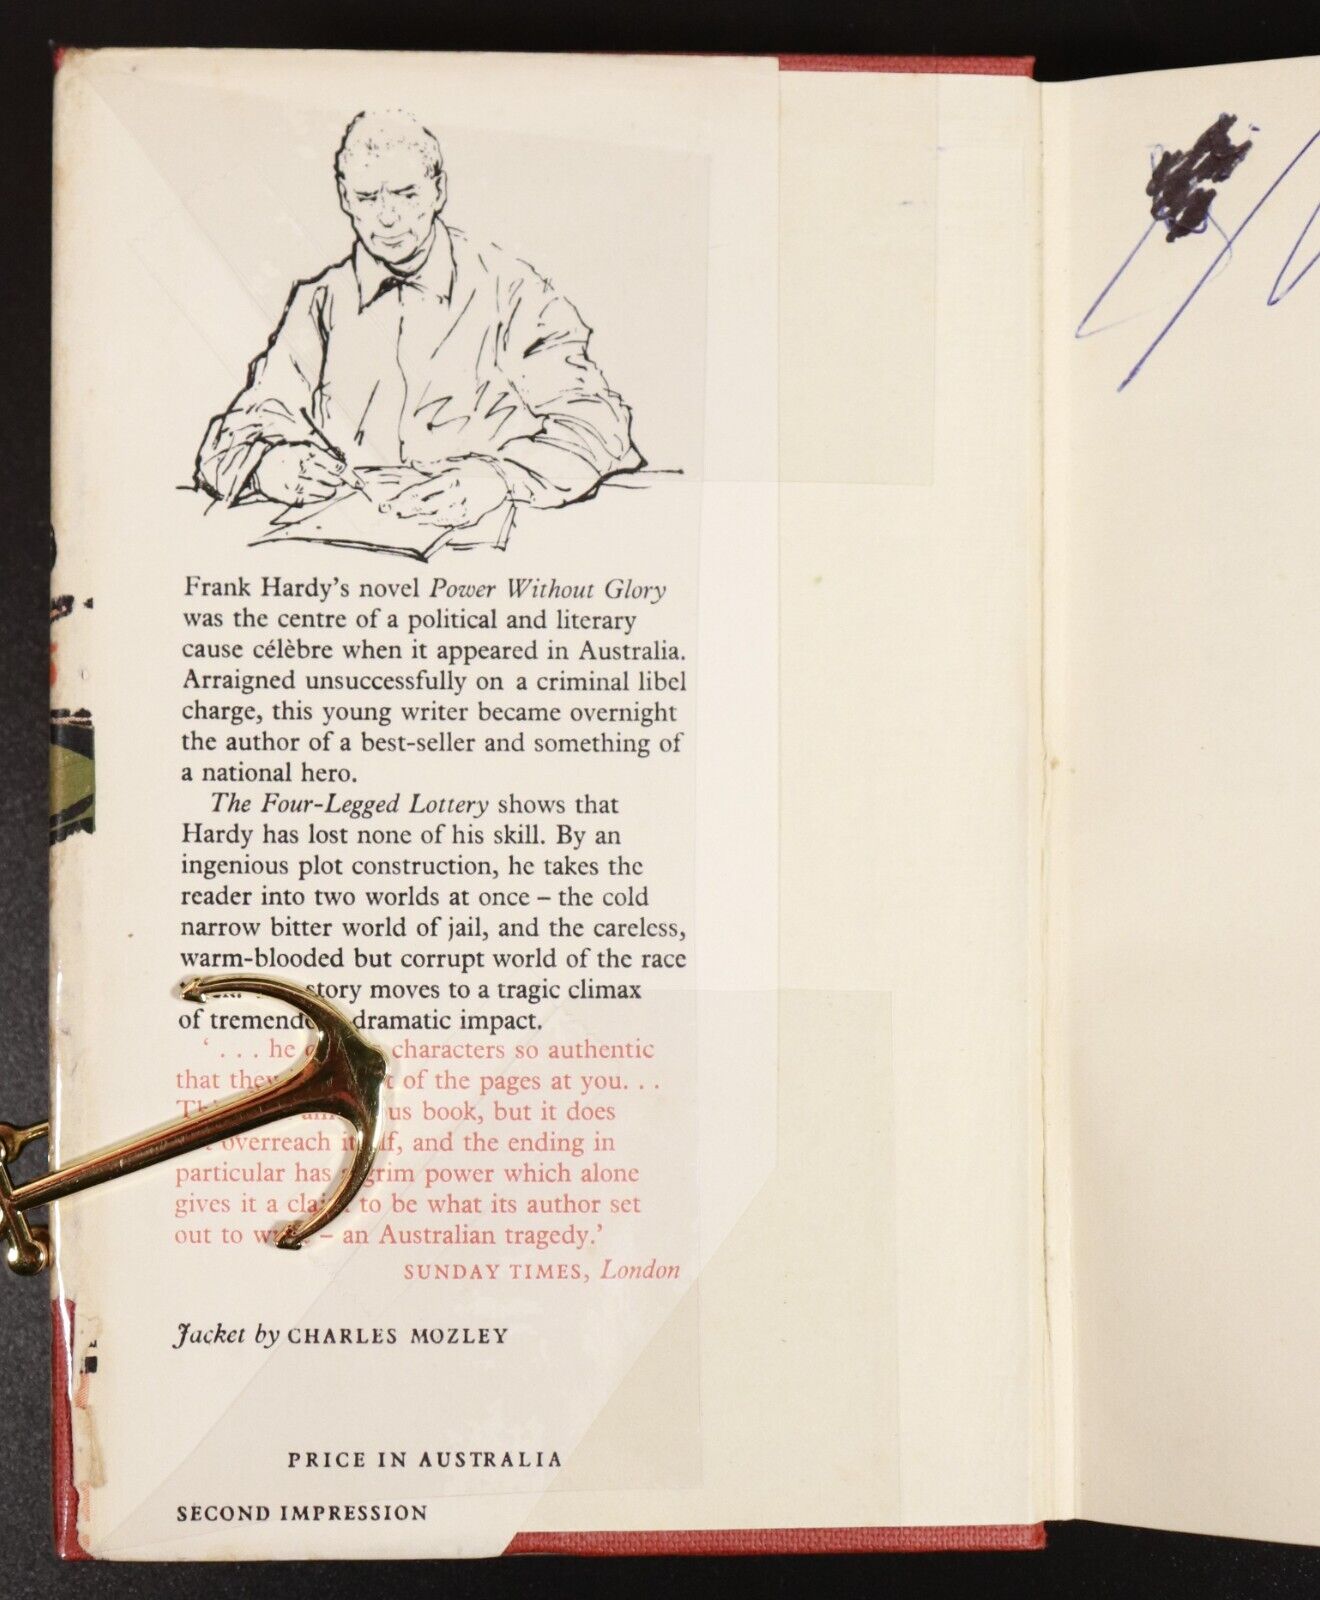 Frank Hardy's novel Power Without Glory
was the centre of a political and literary
cause célèbre when it appeared in Australia.
Arraigned unsuccessfully on a criminal libel
charge, this young writer became overnight
the author of a best-seller and something of
a national hero.
The Four-Legged Lottery shows that
Hardy has lost none of his skill. By an
ingenious plot construction, he takes the
reader into two worlds at once – the cold
narrow bitter world of jail, and the careless,
warm-blooded but corrupt world of the race
story moves to a tragic climax
of dramatic impact.
' . . . he characters so authentic
that they of the pages at you. . .
book, but it does
overreach itself, and the ending in
particular has grim power which alone
gives it a claim to be what its author set
out to – an Australian tragedy.'
SUNDAY TIMES, London
Jacket by CHARLES MOZLEY
PRICE IN AUSTRALIA
SECOND IMPRESSION